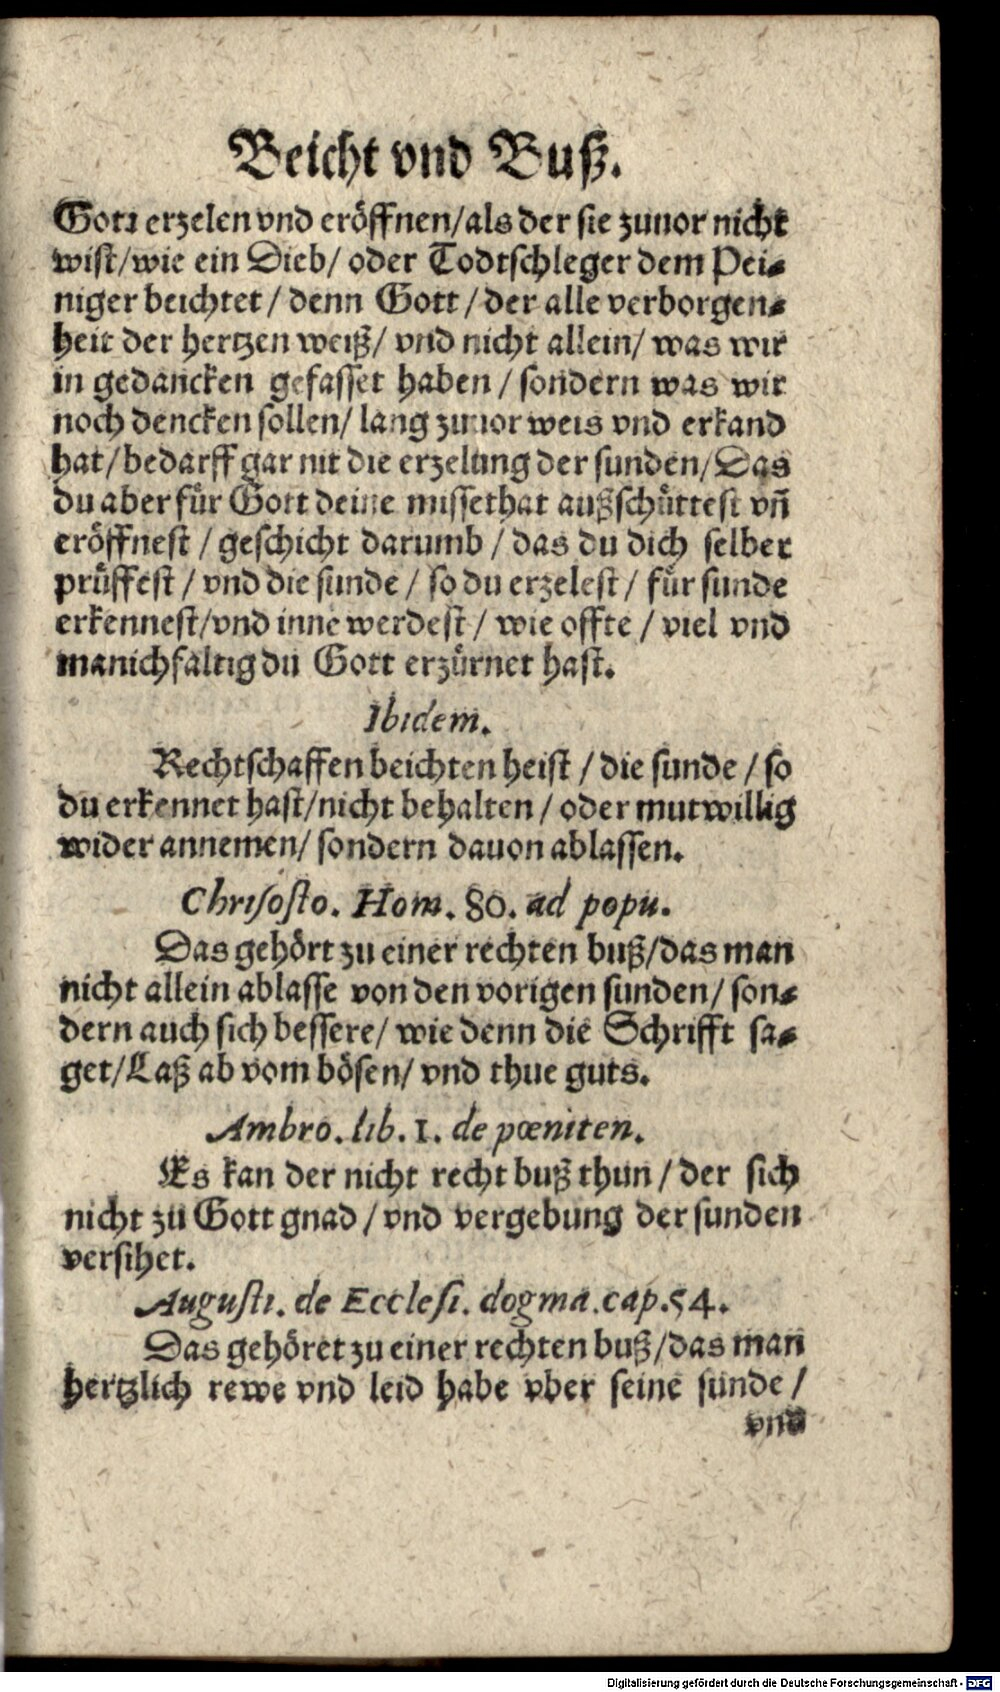 Beicht vnd Buß.
Gott erzelen vnd eröffnen/als der sie zuuor nicht
wist/wie ein Dieb/ oder Todtschleger dem Pei-
niger beichtet/ denn Gott/ der alle verborgen-
heit der hertzen weiß/ vnd nicht allein/ was wir
in gedancken gefasset haben/ sondern was wir
noch dencken sollen/ lang zuuor weis vnd erkand
hat/bedarff gar nit die erzelung der sunden/Das
du aber für Gott deine missethat außschüttest vñ
eröffnest/ geschicht darumb/ das du dich selber
prüffest/ vnd die sunde/ so du erzelest/ für sunde
erkennest/vnd inne werdest/ wie offte/ viel vnd
manichfaltig du Gott erzürnet hast.
Ibidem.
Rechtschaffen beichten heist/ die sunde/ so
du erkennet hast/nicht behalten/ oder mutwillig
wider annemen/ sondern dauon ablassen.
Chrisosto. Hom. 80. ad popu.
Das gehört zu einer rechten buß/das man
nicht allein ablasse von den vorigen sunden/ son-
dern auch sich bessere/ wie denn die Schrifft sa-
get/Laß ab vom bösen/ vnd thue guts.
Ambro. lib. 1. de pœniten.
Es kan der nicht recht buß thun/ der sich
nicht zu Gott gnad/ vnd vergebung der sunden
versihet.
Augusti. de Ecclesi. dogma. cap. 54.
Das gehöret zu einer rechten buß/das man
hertzlich rewe vnd leid habe vber seine sunde/
vnd
Digitalisierung gefördert durch die Deutsche Forschungsgemeinschaft - DFG